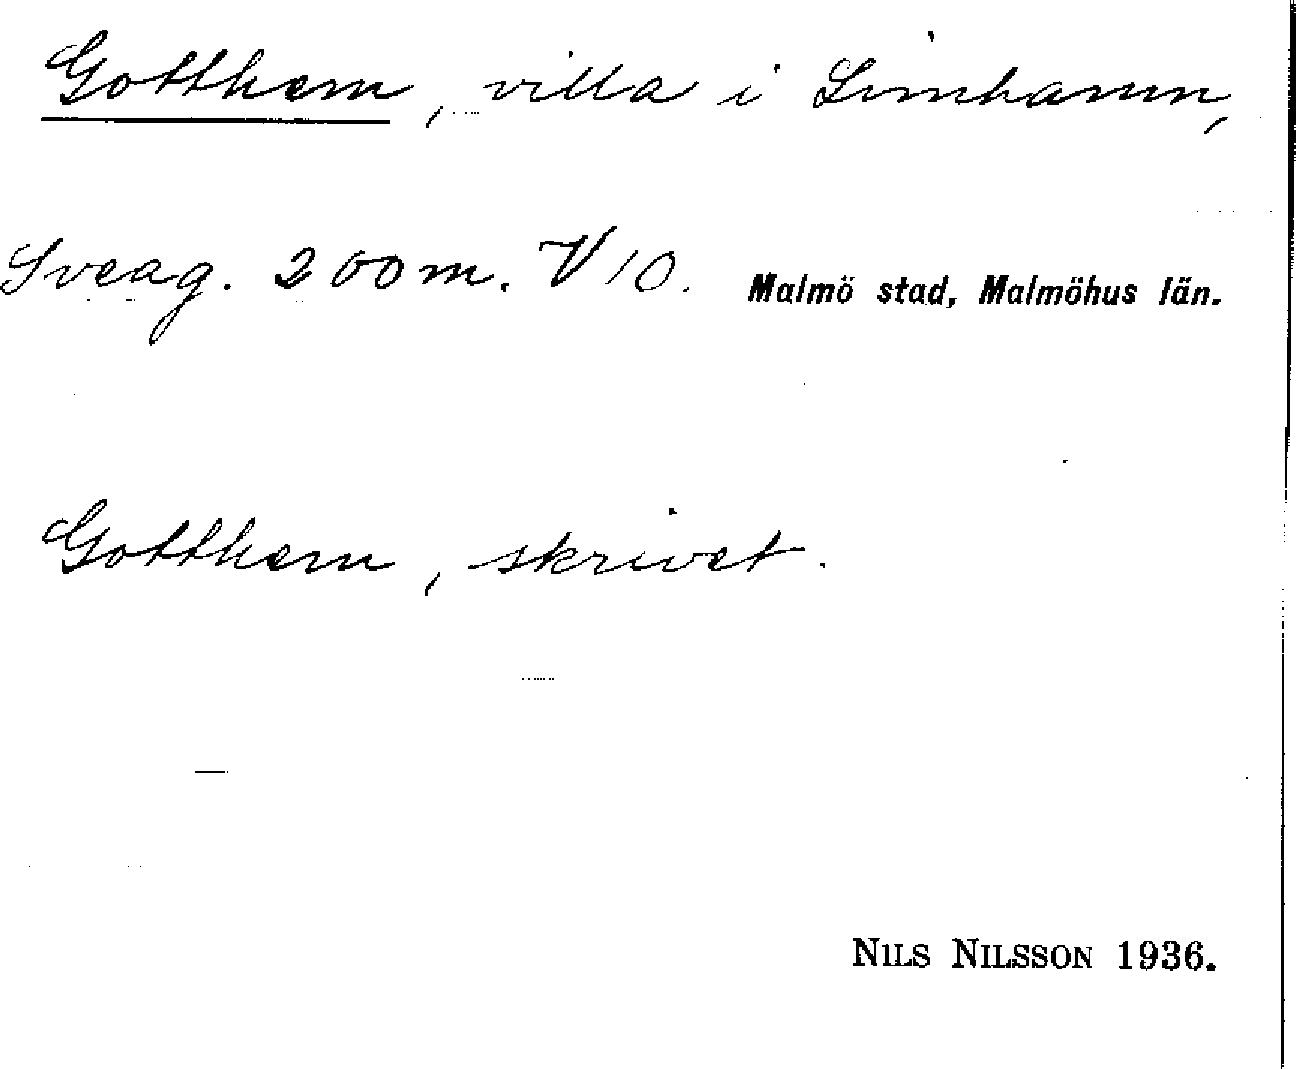 Gotthem, villa i Limhamn,
Sveag. 200 m. V 10. Malmö stad, Malmöhus län.
Gotthem, skrivet.
NILS NILSSON 1936.